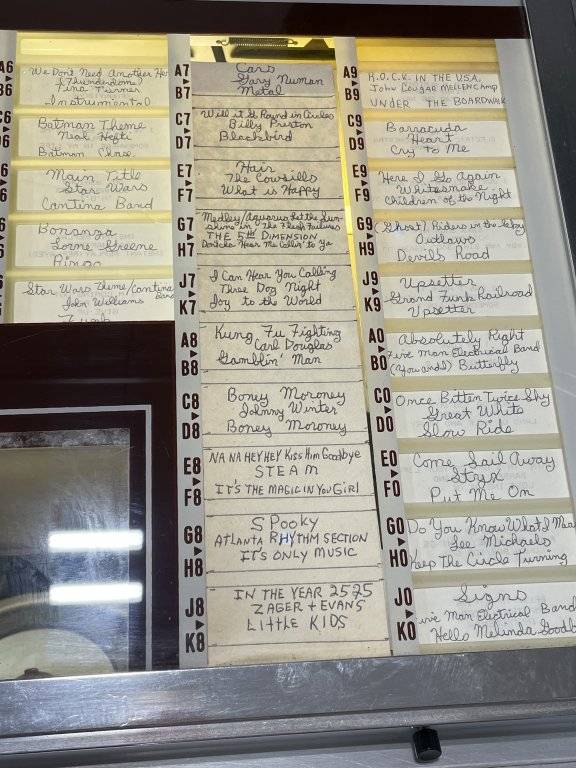 A6
B6
We Dont Need Another He
(Thunderdome)
Tina Turner
Instrumental
C6
D6
Batman Theme
Neal Hefti
Batman Chase
6
6
Main Title
Star Wars
Cantina Band
6
6
Bonanza
Lorne Greene
Ringo
6
Star Wars Theme/Cantina
Band
John Williams
A7
B7
Cars
Gary Numan
Metal
C7
D7
Will it Go Round in Circles
Billy Preston
Blackbird
E7
F7
Hair
The Cowsills
What is Happy
G7
H7
Medley/Aquarius Let the Sun-
shine in / The Flesh Failures
THE 5TH DIMENSION
Hear Me Callin' to Ya
J7
K7
I Can Hear You Calling
Three Dog Night
Joy to the World
A8
B8
Kung Fu Fighting
Carl Douglas
Gamblin' Man
C8
D8
Boney Moroney
Johnny Winter
Boney Moroney
E8
F8
NA NA HEY HEY Kiss Him Goodbye
STEAM
IT'S THE MAGIC IN YOU GIRL
G8
H8
SPooky
ATLANTA RHYTHM SECTION
IT'S ONLY MUSIC
J8
K8
IN THE YEAR 2525
ZAGER + EVANS
LITTLE KIDS
A9
B9
R.O.C.K. IN THE U.S.A.
John Cougar MELLENCAMP
UNDER THE BOARDWALK
C9
D9
Barracuda
Heart
Cry to Me
E9
F9
Here I Go Again
Whitesnake
Children of the Night
G9
H9
(Ghost) Riders in the Sky
Outlaws
Devil's Road
J9
K9
Upsetter
Grand Funk Railroad
Upsetter
A0
B0
Absolutely Right
Five Man Electrical Band
(You and I) Butterfly
C0
D0
Once Bitten Twice Shy
Great White
Slow Ride
E0
F0
Come Sail Away
Styx
Put Me On
G0
H0
Do You Know What I Mean
Lee Michaels
Keep The Circle Turning
J0
K0
Signs
ive Man Electrical Band
Hello Melinda Goodb